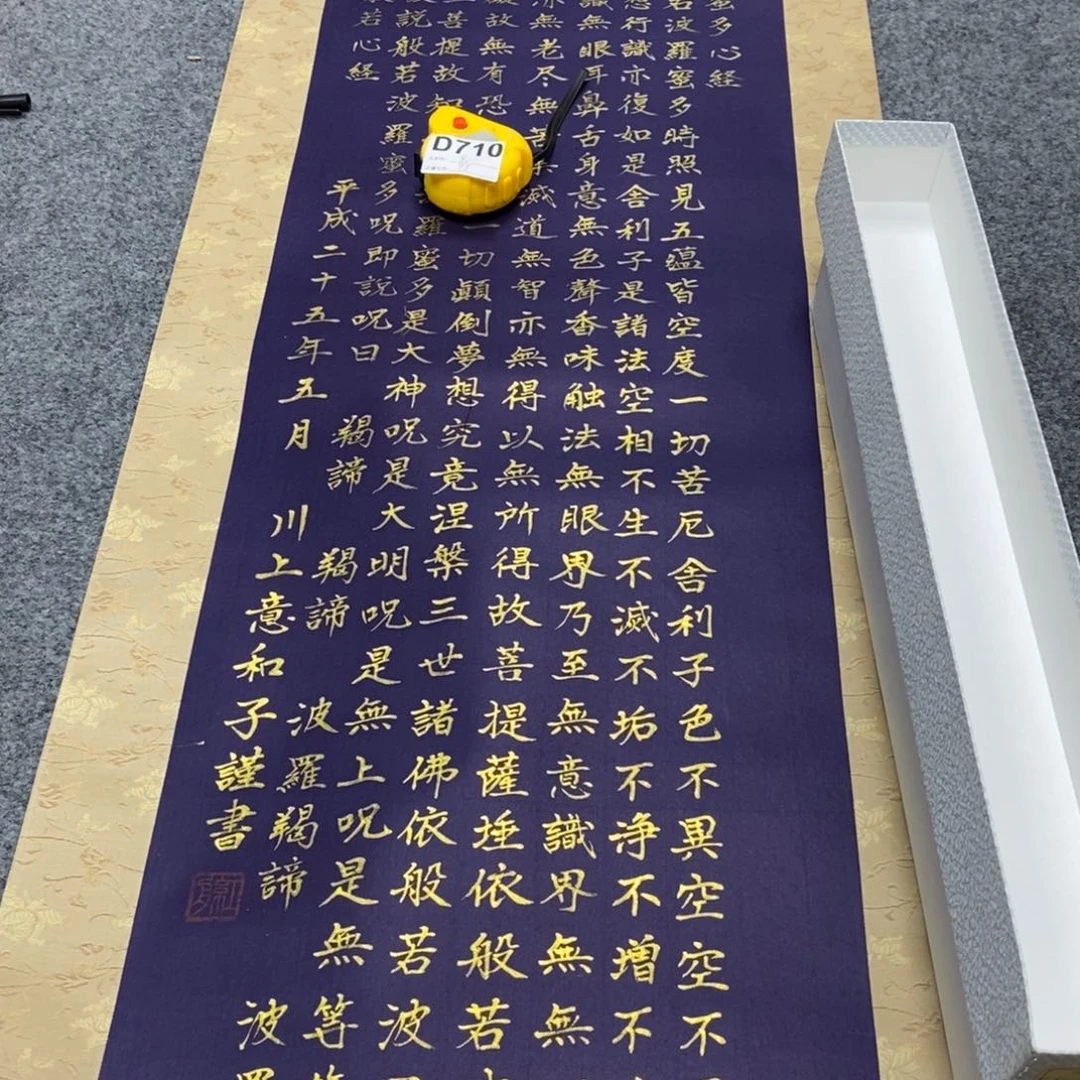 蜜多心経
若波羅蜜多時照見五蘊皆空度一切苦厄舎利子色不異空空不
行識亦復如是舎利子是諸法空相不生不滅不垢不浄不増不
識無眼耳鼻舌身意無色聲香味触法無眼界乃至無意識界無無
亦無老尽無苦滅道無智亦無得以無所得故菩提薩埵依般若
故無有恐一切顛倒夢想究竟涅槃三世諸佛依般若波
菩提故知羅蜜多是大神呪是大明呪是無上呪是無等
説般若波羅蜜多呪即説呪曰 羯諦 羯諦 波羅羯諦 波
若心経
平成二十五年五月 川上意和子謹書
D710